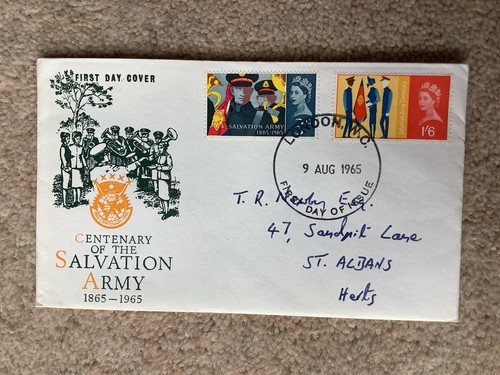 FIRST DAY COVER
SALVATION ARMY
1865 1965
1/6
LONDON W.C.
9 AUG 1965
FIRST DAY OF ISSUE
T. R. Newby Esq.
47, Sandpit Lane
ST. ALBANS
Herts
CENTENARY
OF THE
SALVATION
ARMY
1865–1965